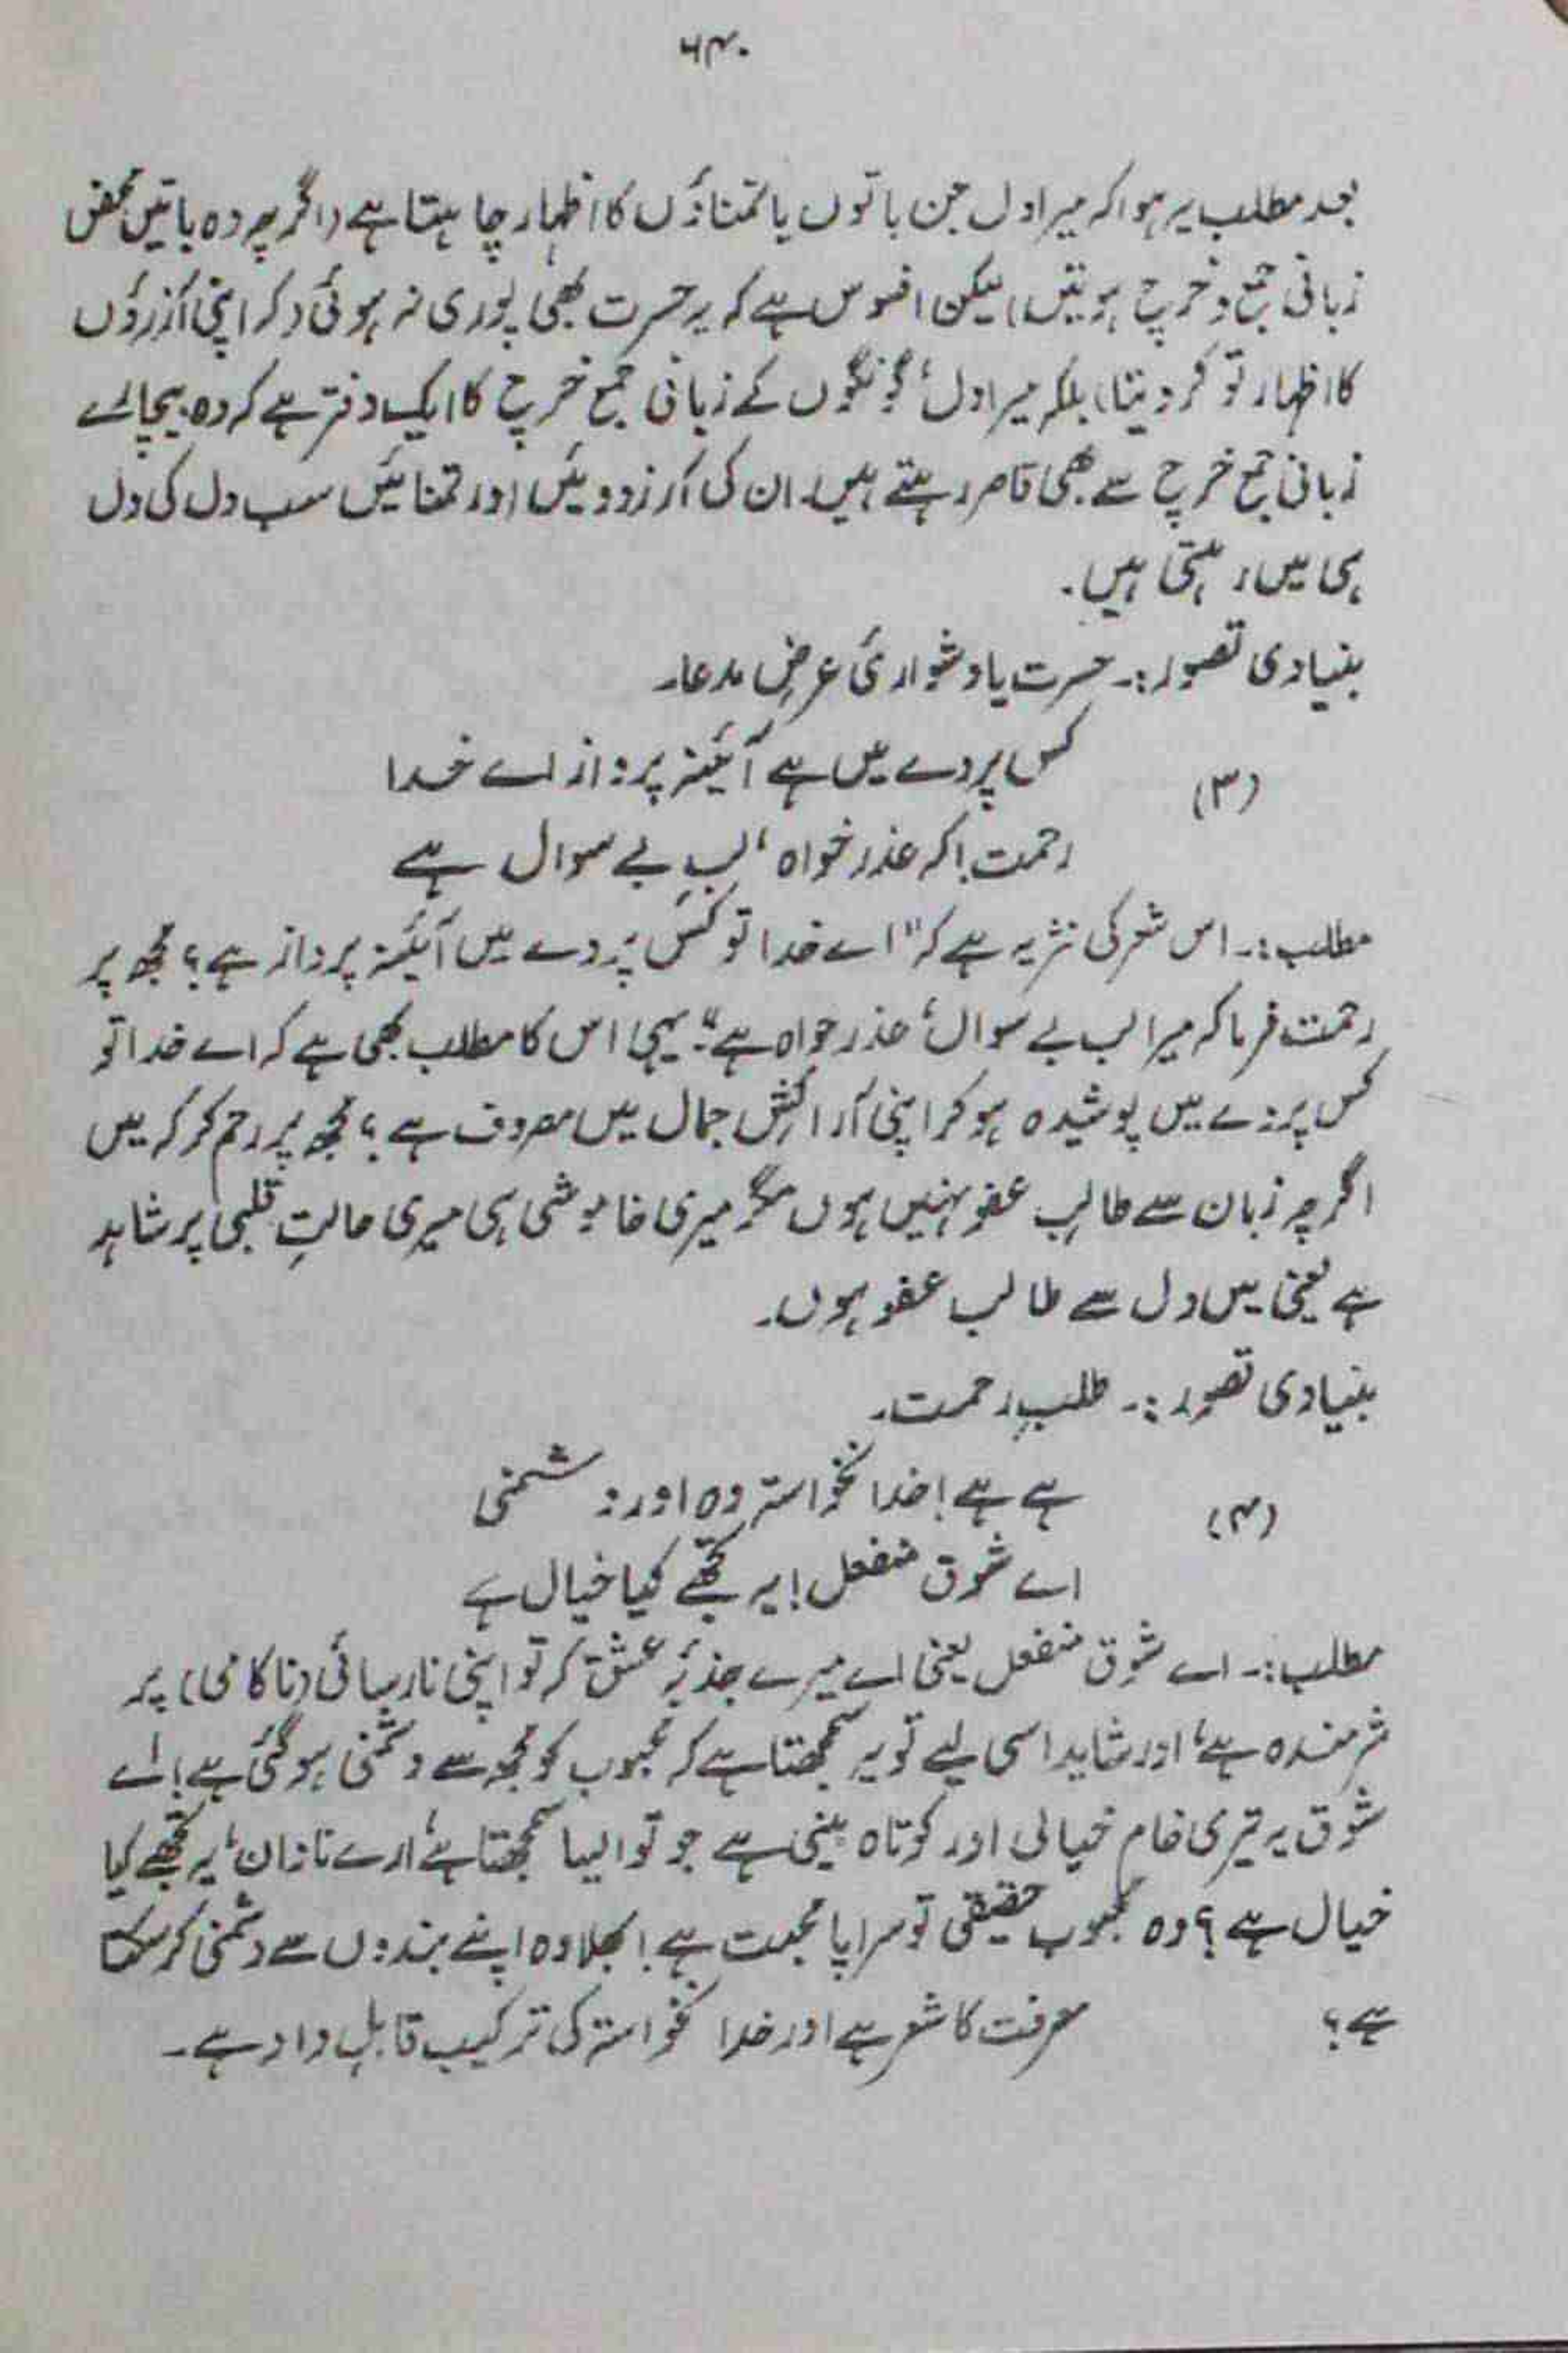 ۶۴۰
بعد مطلب یہ ہوا کہ میرا دل جن باتوں یا تمناؤں کا اظہار چاہتا ہے (اگرچہ وہ باتیں محض
زبانی جمع و خرچ ہوتیں) لیکن افسوس ہے کہ یہ حسرت بھی پوری نہ ہوئی (کہ اپنی آرزوؤں
کا اظہار تو کر دیتا) بلکہ میرا دل، گونگوں کے زبانی جمع خرچ کا ایک دفتر ہے کہ وہ بیچارے
زبانی جمع خرچ سے بھی قاصر رہتے ہیں۔ ان کی آرزوویئں اور تمنائیں سب دل کی دل
ہی میں رہتی ہیں۔
بنیادی تصور:۔ حسرت یا دشواریٔ عرضِ مدعا۔
(۳) کس پردے میں ہے آئینہ پرداز اے خدا
رحمت! کہ عذر خواہ، لبِ بے سوال ہے
مطلب:۔ اس شعر کی نثر یہ ہے کہ "اے خدا تو کس پردے میں آئینہ پرداز ہے؟ مجھ پر
رحمت فرما کہ میرا لب بے سوال، عذر خواہ ہے"۔ یہی اس کا مطلب بھی ہے کہ اے خدا تو
کس پردے میں پوشیدہ ہو کر اپنی آرائشِ جمال میں مصروف ہے؟ مجھ پر رحم کر کہ میں
اگرچہ زبان سے طالبِ عفو نہیں ہوں مگر میری خاموشی ہی میری حالتِ قلبی پر شاہد
ہے یعنی میں دل سے طالب عفو ہوں۔
بنیادی تصور:۔ طلبِ رحمت۔
(۴) ہے ہے! خدا نخواستہ وہ اور دشمنی
اے شوق منفعل! یہ تجھے کیا خیال ہے
مطلب:۔ اے شوق منفعل یعنی اے میرے جذبۂ عشق کہ تو اپنی نارسائی (ناکامی) پر
شرمندہ ہے، اور شاید اسی لیے تو یہ سمجھتا ہے کہ محبوب کو مجھ سے دشمنی ہو گئی ہے! اے
شوق یہ تیری خام خیالی اور کوتاہ بینی ہے جو تو ایسا سمجھتا ہے، ارے نادان، یہ تجھے کیا
خیال ہے؟ وہ محبوب حقیقی تو سراپا محبت ہے! بھلا وہ اپنے بندوں سے دشمنی کر سکتا
ہے؟ معرفت کا شعر ہے اور خدا نخواستہ کی ترکیب قابلِ داد ہے۔